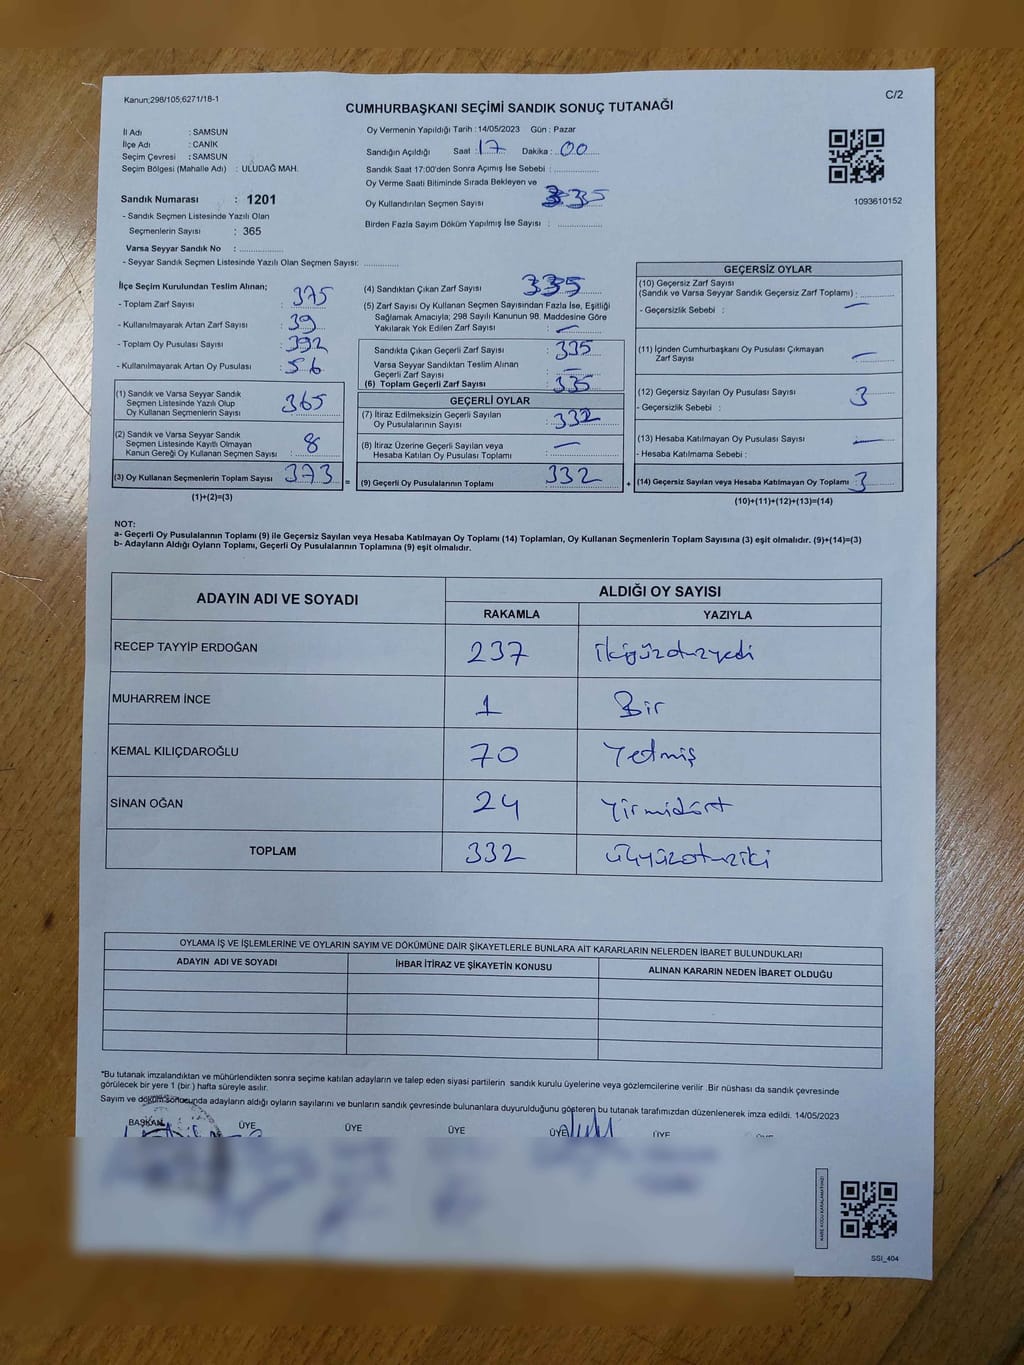 Kanun;298/105;6271/18-1
C/2
CUMHURBAŞKANI SEÇİMİ SANDIK SONUÇ TUTANAĞI
İl Adı : SAMSUN
İlçe Adı : CANİK
Seçim Çevresi : SAMSUN
Seçim Bölgesi (Mahalle Adı) : ULUDAĞ MAH.
Sandık Numarası : 1201
- Sandık Seçmen Listesinde Yazılı Olan
Seçmenlerin Sayısı : 365
Varsa Seyyar Sandık No : ..............
- Seyyar Sandık Seçmen Listesinde Yazılı Olan Seçmen Sayısı: ............
Oy Vermenin Yapıldığı Tarih : 14/05/2023 Gün : Pazar
Sandığın Açıldığı Saat : 17 Dakika : 00
Sandık Saat 17:00'den Sonra Açımış İse Sebebi : ..............
Oy Verme Saati Bitiminde Sırada Bekleyen ve
Oy Kullandırılan Seçmen Sayısı 335
Birden Fazla Sayım Döküm Yapılmış İse Sayısı : ..............
1093610152
İlçe Seçim Kurulundan Teslim Alınan;
- Toplam Zarf Sayısı : 375
- Kullanılmayarak Artan Zarf Sayısı : 39
- Toplam Oy Pusulası Sayısı : 392
- Kullanılmayarak Artan Oy Pusulası : 56
(1) Sandık ve Varsa Seyyar Sandık
Seçmen Listesinde Yazılı Olup
Oy Kullanan Seçmenlerin Sayısı : 365
(2) Sandık ve Varsa Seyyar Sandık
Seçmen Listesinde Kayıtlı Olmayan
Kanun Gereği Oy Kullanan Seçmen Sayısı : 8
(3) Oy Kullanan Seçmenlerin Toplam Sayısı : 373 =
(1)+(2)=(3)
(4) Sandıktan Çıkan Zarf Sayısı : 335
(5) Zarf Sayısı Oy Kullanan Seçmen Sayısından Fazla İse, Eşitliği
Sağlamak Amacıyla; 298 Sayılı Kanunun 98. Maddesine Göre
Yakılarak Yok Edilen Zarf Sayısı : —
Sandıkta Çıkan Geçerli Zarf Sayısı : 335
Varsa Seyyar Sandıktan Teslim Alınan
Geçerli Zarf Sayısı : —
(6) Toplam Geçerli Zarf Sayısı : 335
GEÇERLİ OYLAR
(7) İtiraz Edilmeksizin Geçerli Sayılan
Oy Pusulalarının Sayısı : 332
(8) İtiraz Üzerine Geçerli Sayılan veya
Hesaba Katılan Oy Pusulası Toplamı : —
(9) Geçerli Oy Pusulalarının Toplamı : 332 +
GEÇERSİZ OYLAR
(10) Geçersiz Zarf Sayısı
(Sandık ve Varsa Seyyar Sandık Geçersiz Zarf Toplamı) : ............
- Geçersizlik Sebebi : —
(11) İçinden Cumhurbaşkanı Oy Pusulası Çıkmayan
Zarf Sayısı : —
(12) Geçersiz Sayılan Oy Pusulası Sayısı : 3
- Geçersizlik Sebebi :
(13) Hesaba Katılmayan Oy Pusulası Sayısı : —
- Hesaba Katılmama Sebebi :
(14) Geçersiz Sayılan veya Hesaba Katılmayan Oy Toplamı : 3
(10)+(11)+(12)+(13)=(14)
NOT:
a- Geçerli Oy Pusulalarının Toplamı (9) ile Geçersiz Sayılan veya Hesaba Katılmayan Oy Toplamı (14) Toplamları, Oy Kullanan Seçmenlerin Toplam Sayısına (3) eşit olmalıdır. (9)+(14)=(3)
b- Adayların Aldığı Oyların Toplamı, Geçerli Oy Pusulalarının Toplamına (9) eşit olmalıdır.
ADAYIN ADI VE SOYADI ALDIĞI OY SAYISI
RAKAMLA YAZIYLA
RECEP TAYYİP ERDOĞAN 237 ikiyüzotuzyedi
MUHARREM İNCE 1 Bir
KEMAL KILIÇDAROĞLU 70 Yetmiş
SİNAN OĞAN 24 Yirmidört
TOPLAM 332 üçyüzotuziki
OYLAMA İŞ VE İŞLEMLERİNE VE OYLARIN SAYIM VE DÖKÜMÜNE DAİR ŞİKAYETLERLE BUNLARA AİT KARARLARIN NELERDEN İBARET BULUNDUKLARI
ADAYIN ADI VE SOYADI İHBAR İTİRAZ VE ŞİKAYETİN KONUSU ALINAN KARARIN NEDEN İBARET OLDUĞU
*Bu tutanak imzalandıktan ve mühürlendikten sonra seçime katılan adayların ve talep eden siyasi partilerin sandık kurulu üyelerine veya gözlemcilerine verilir .Bir nüshası da sandık çevresinde
görülecek bir yere 1 (bir ) hafta süreyle asılır.
Sayım ve döküm sonucunda adayların aldığı oyların sayılarını ve bunların sandık çevresinde bulunanlara duyurulduğunu gösteren bu tutanak tarafımızdan düzenlenerek imza edildi. 14/05/2023
BAŞKAN ÜYE ÜYE ÜYE ÜYE ÜYE ÜYE
SSI_404